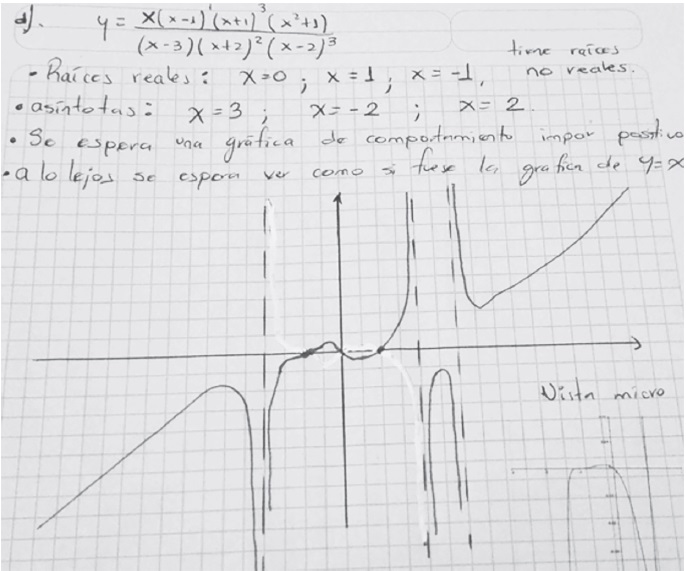 d). y = x(x-1)¹(x+1)³(x²+1) / (x-3)(x+2)²(x-2)³
tiene raíces
• Raíces reales: x=0 ; x=1 ; x=-1, no reales.
• asíntotas: x=3 ; x=-2 ; x=2.
• Se espera una gráfica de comportamiento impar positivo
• a lo lejos se espera ver como si fuese la grafica de y=x
Vista micro